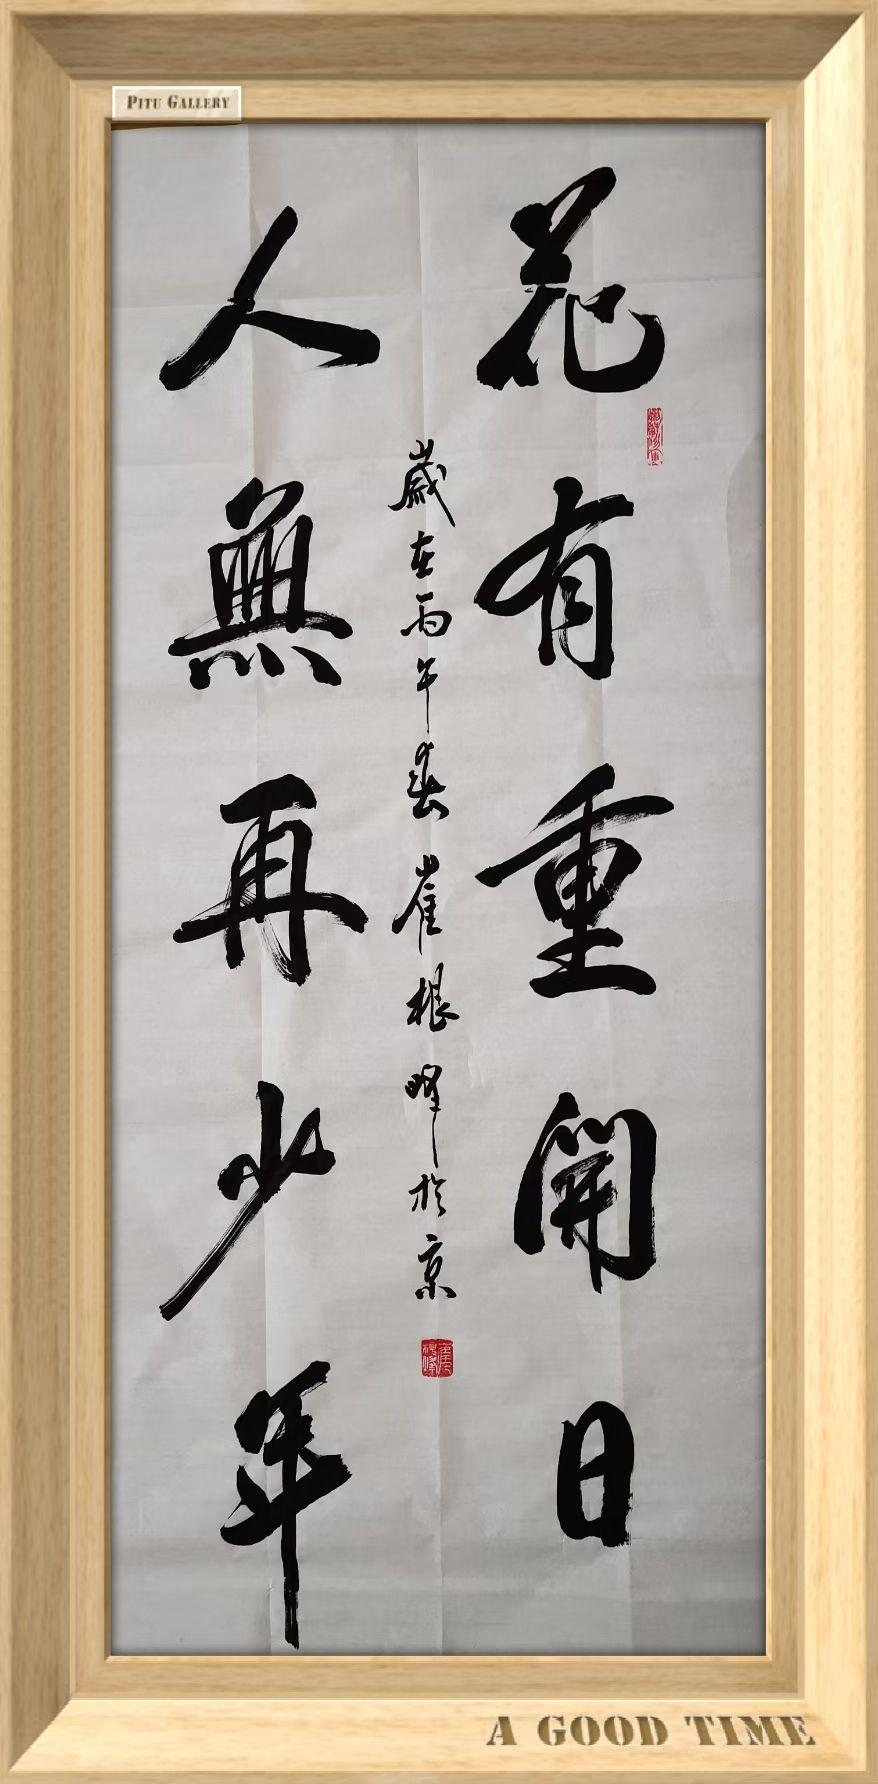 PITU GALLERY
花有重開日
人無再少年
歲在丙午春崔根峰於京
A GOOD TIME